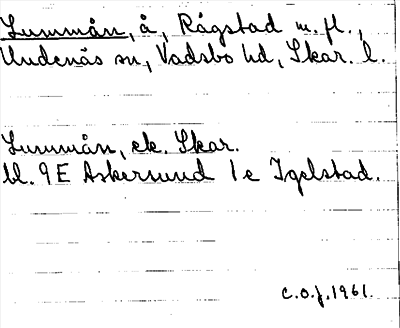 Lummån, å, Rågstad m. fl.,
Undenäs sn, Vadsbo hd, Skar. l.
Lummån, ek. Skar.
bl. 9E Askersund 1e Igelstad.
C.O.J. 1961.